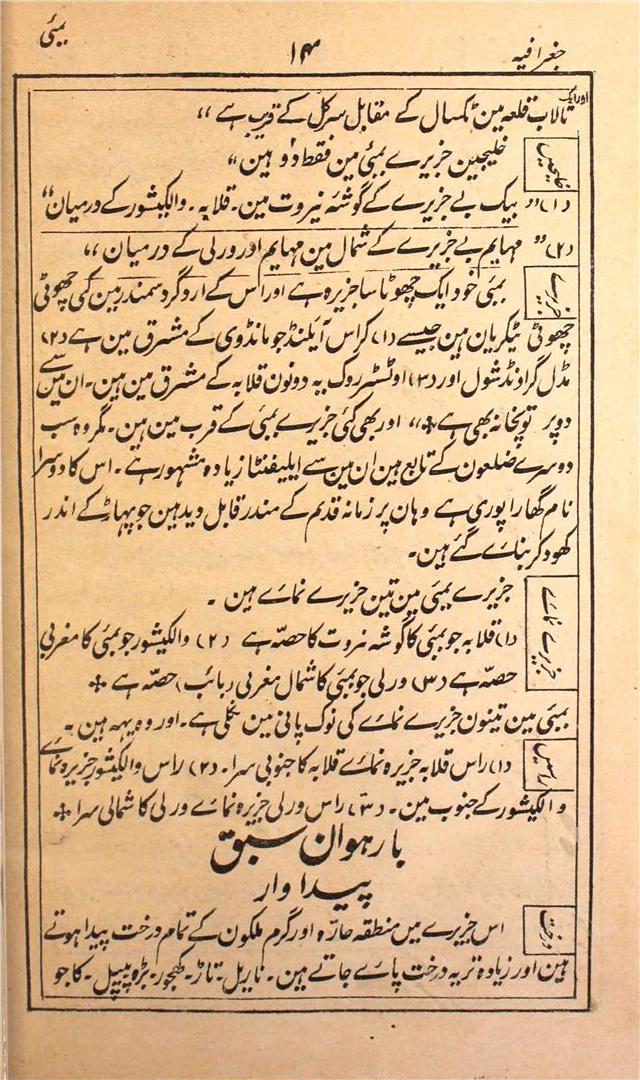 جغرافیہ ۱۴ بمبئی
اور ایک
تالاب قلعہ مین ٹکسال کے مقابل سرکل کے قریب ہے ،،
خلیجیں
خلیجین جزیرے بمبئی مین فقط دو ہین ،،
(۱) ,, بیک بے جزیرے کے گوشۂ نیروت مین ۔ قلابہ ۔ والکیشور کے درمیان ،،
(۲) ,, مہایم بے جزیرے کے شمال مین مہایم اور ورلی کے درمیان ،،
جزیرے
بمبئی خود ایک چھوٹا سا جزیرہ ہے اور اُس کے ارد گرد سمندر مین کئی چھوٹی
چھوٹی ٹیکریان ہین جیسے (۱) کراس آیلنڈ جو مانڈوی کے مشرق مین ہے (۲)
مڈل گراونڈ شول اور (۳) اوئسٹر روک یہ دونون قلابہ کے مشرق مین ہین ۔ ان مین سے
دو پر توپخانہ بھی ہے ،، اور بھی کئی جزیرے بمبئی کے قرب مین ہین ۔ مگر وہ سب
دوسرے ضلعون کے تابع ہین ان مین سے ایلیفنٹا زیادہ مشہور ہے ۔ اس کا دوسرا
نام گھاراپوری ہے وہان پر زمانہ قدیم کے مندر قابل دید ہین جو پہاڑ کے اندر
کھود کر بنائے گئے ہین ۔
جزیرے نمائے
جزیرے بمبئی مین تین جزیرے نمائے ہین ۔
(۱) قلابہ جو بمبئی کا گوشۂ نروت کا حصّہ ہے (۲) والکیشور جو بمبئی کا مغربی
حصّہ ہے (۳) ورلی جو بمبئی کا شمال مغربی (بائب) حصّہ ہے
بمبئی مین تینون جزیرے نمائے کی نوک پانی مین نکلی ہے ۔ اور وہ یہہ ہین ۔
راسیں
(۱) راس قلابہ جزیرہ نمائے قلابہ کا جنوبی سرا ۔ (۲) راس والکیشور جزیرہ نمائے
والکیشور کے جنوب مین ۔ (۳) راس ورلی جزیرہ نمائے ورلی کا شمالی سرا
بارہوان سبق
پیداوار
درخت
اس جزیرے میں منطقہ حارّہ اور گرم ملکون کے تمام درخت پیدا ہوتے
ہین اور زیادہ تر یہ درخت پائے جاتے ہین ۔ ناریل ۔ تاڑ ۔ کھجور ۔ بڑ و پیپل ۔ کاجو